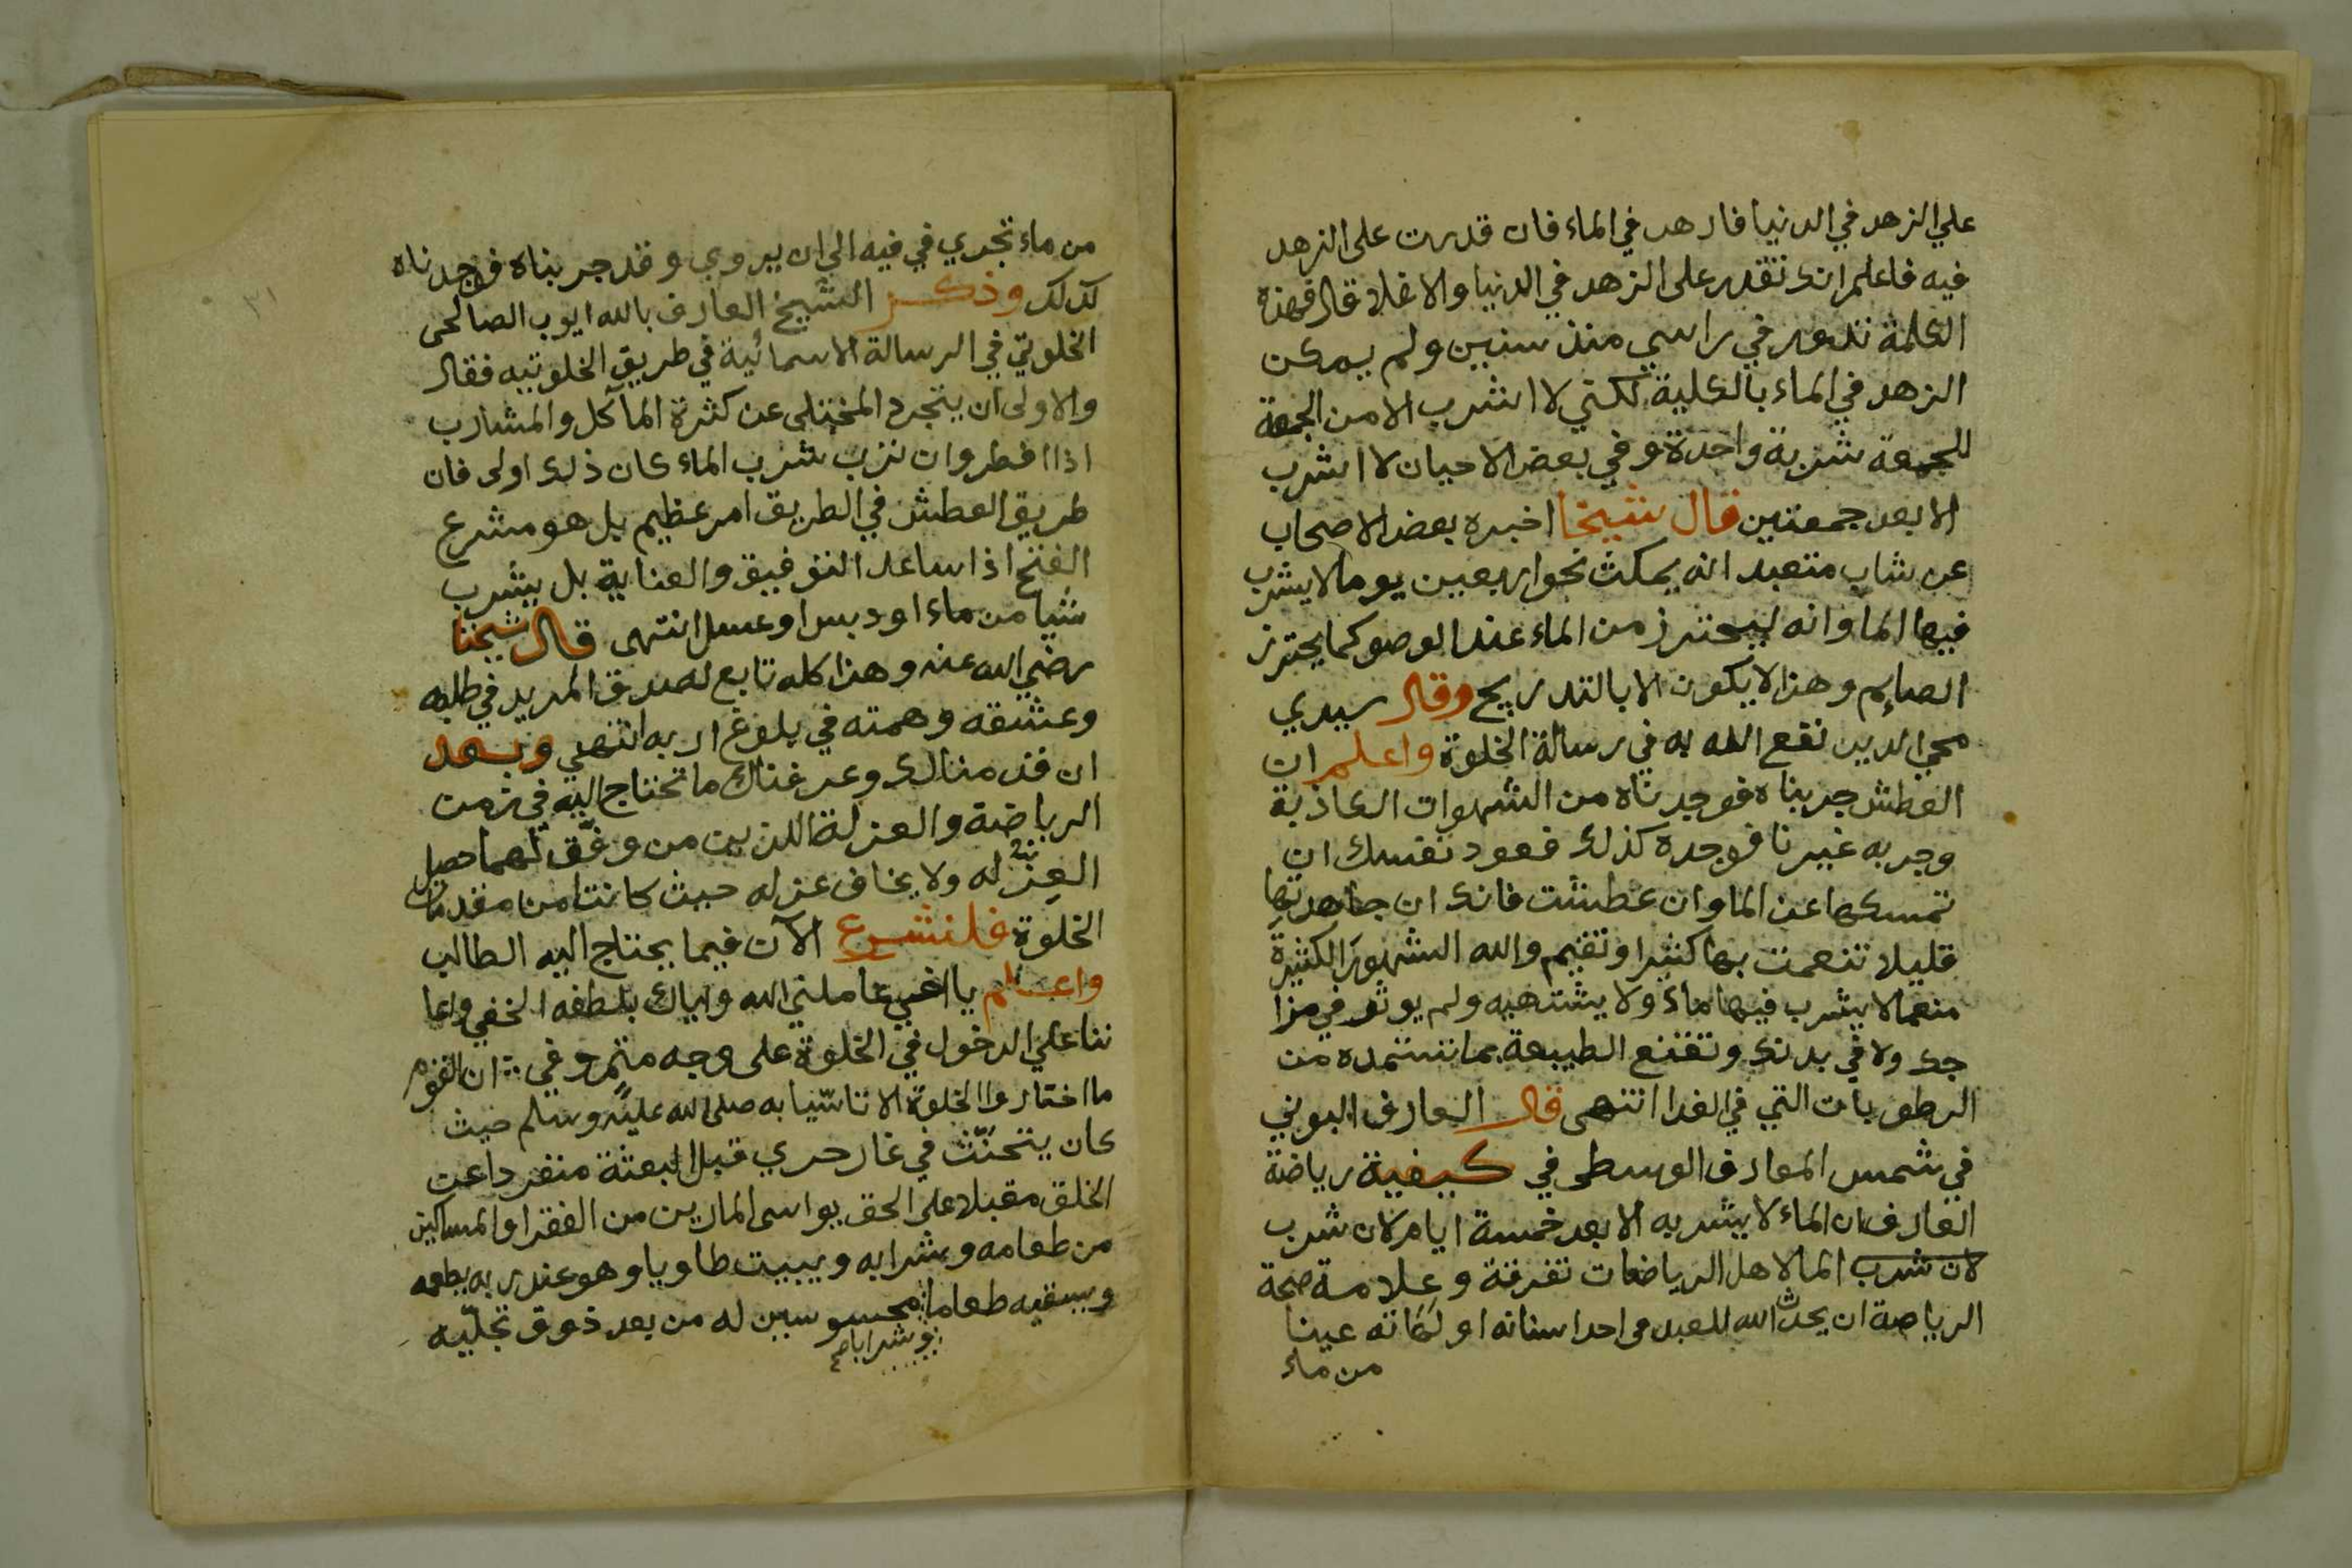 علي الزهد في الدنيا فازهد في الماء فان قدرت على الزهد
فيه فاعلم انك تقدر على الزهد في الدنيا والا فلا قال فهذه
الكلمة تدور في راسي منذ سنين ولم يمكن
الزهد في الماء بالكلية لكني لا اشرب الا من الجمعة
للجمعة شربة واحدة وفي بعض الاحيان لا اشرب
الا بعد جمعتين قال شيخنا اخبره بعض الاصحاب
عن شاب متعبد انه يمكث نحو اربعين يوما لا يشرب
فيها الما وانه ليحترز من الماء عند الوضو كما يحترز
الصايم وهذا لا يكون الا بالتدريج وقال سيدي
محي الدين نفع الله به في رسالة الخلوة واعلم ان
العطش جربناه فوجدناه من الشهوات الكاذبة
وجربه غيرنا فوجده كذلك فعود نفسك ان
تمسكها عن الما وان عطشت فانك ان جاهدتها
قليلا تنعمت بها كثيرا وتقيم والله الشهور الكثيرة
منعما لا يشرب فيها ماء ولا يشتهيه ولم يوثر في مزا
جك ولا في بدنك وتقنع الطبيعة بما تستمده من
الرطوبات التي في الغدا انتهى قال العارف البوني
في شمس المعارف الوسطى في كيفية رياضة
العارف ان الماء لا يشربه الا بعد خمسة ايام لان شرب
لان شرب الما لاهل الرياضات تفرقة وعلامة صحة
الرياضة ان يحدث الله للعبد في احد اسنانه او لثاته عينا
من ماء
من ماء تجري في فيه الى ان يروي وقد جربناه فوجدناه
كذلك وذكر الشيخ العارف بالله ايوب الصالحي
الخلوتي في الرسالة الاسمائية في طريق الخلوتيه فقال
والاولى ان يتجرد المختلي عن كثرة المآكل والمشارب
اذا افطر وان ترك شرب الماء كان ذلك اولى فان
طريق العطش في الطريق امر عظيم بل هو مشرع
الفتح اذا ساعد التوفيق والعناية بل يشرب
شيا من ماء او دبس او عسل انتهى قال شيخنا
رضي الله عنه وهذا كله تابع لصدق المريد في طلبه
وعشقه وهمته في بلوغ اربه انتهى وبعد
ان قدمنا لك وعرفناك ما تحتاج اليه في زمن
الرياضة والعزلة اللذين من وفق لهما حصل
العز له ولا يخاف عزله حيث كانتا من مقدمات
الخلوة فلنشرع الآن فيما يحتاج اليه الطالب
واعلم يا اخي عاملني الله واياك بلطفه الخفي واعا
ننا على الدخول في الخلوة على وجه متمر وفي ان القوم
ما اختاروا الخلوة الا تاسيا به صلى الله عليه وسلم حيث
كان يتحنث في غار حري قبل البعثة منفردا عن
الخلق مقبلا على الحق يواسي المارين من الفقرا والمساكين
من طعامه وشرابه ويبيت طاويا وهو عند ربه يطعمه
ويسقيه طعاما محسوسين له من بعد ذوق تجليه
وشرابا صح
٣١